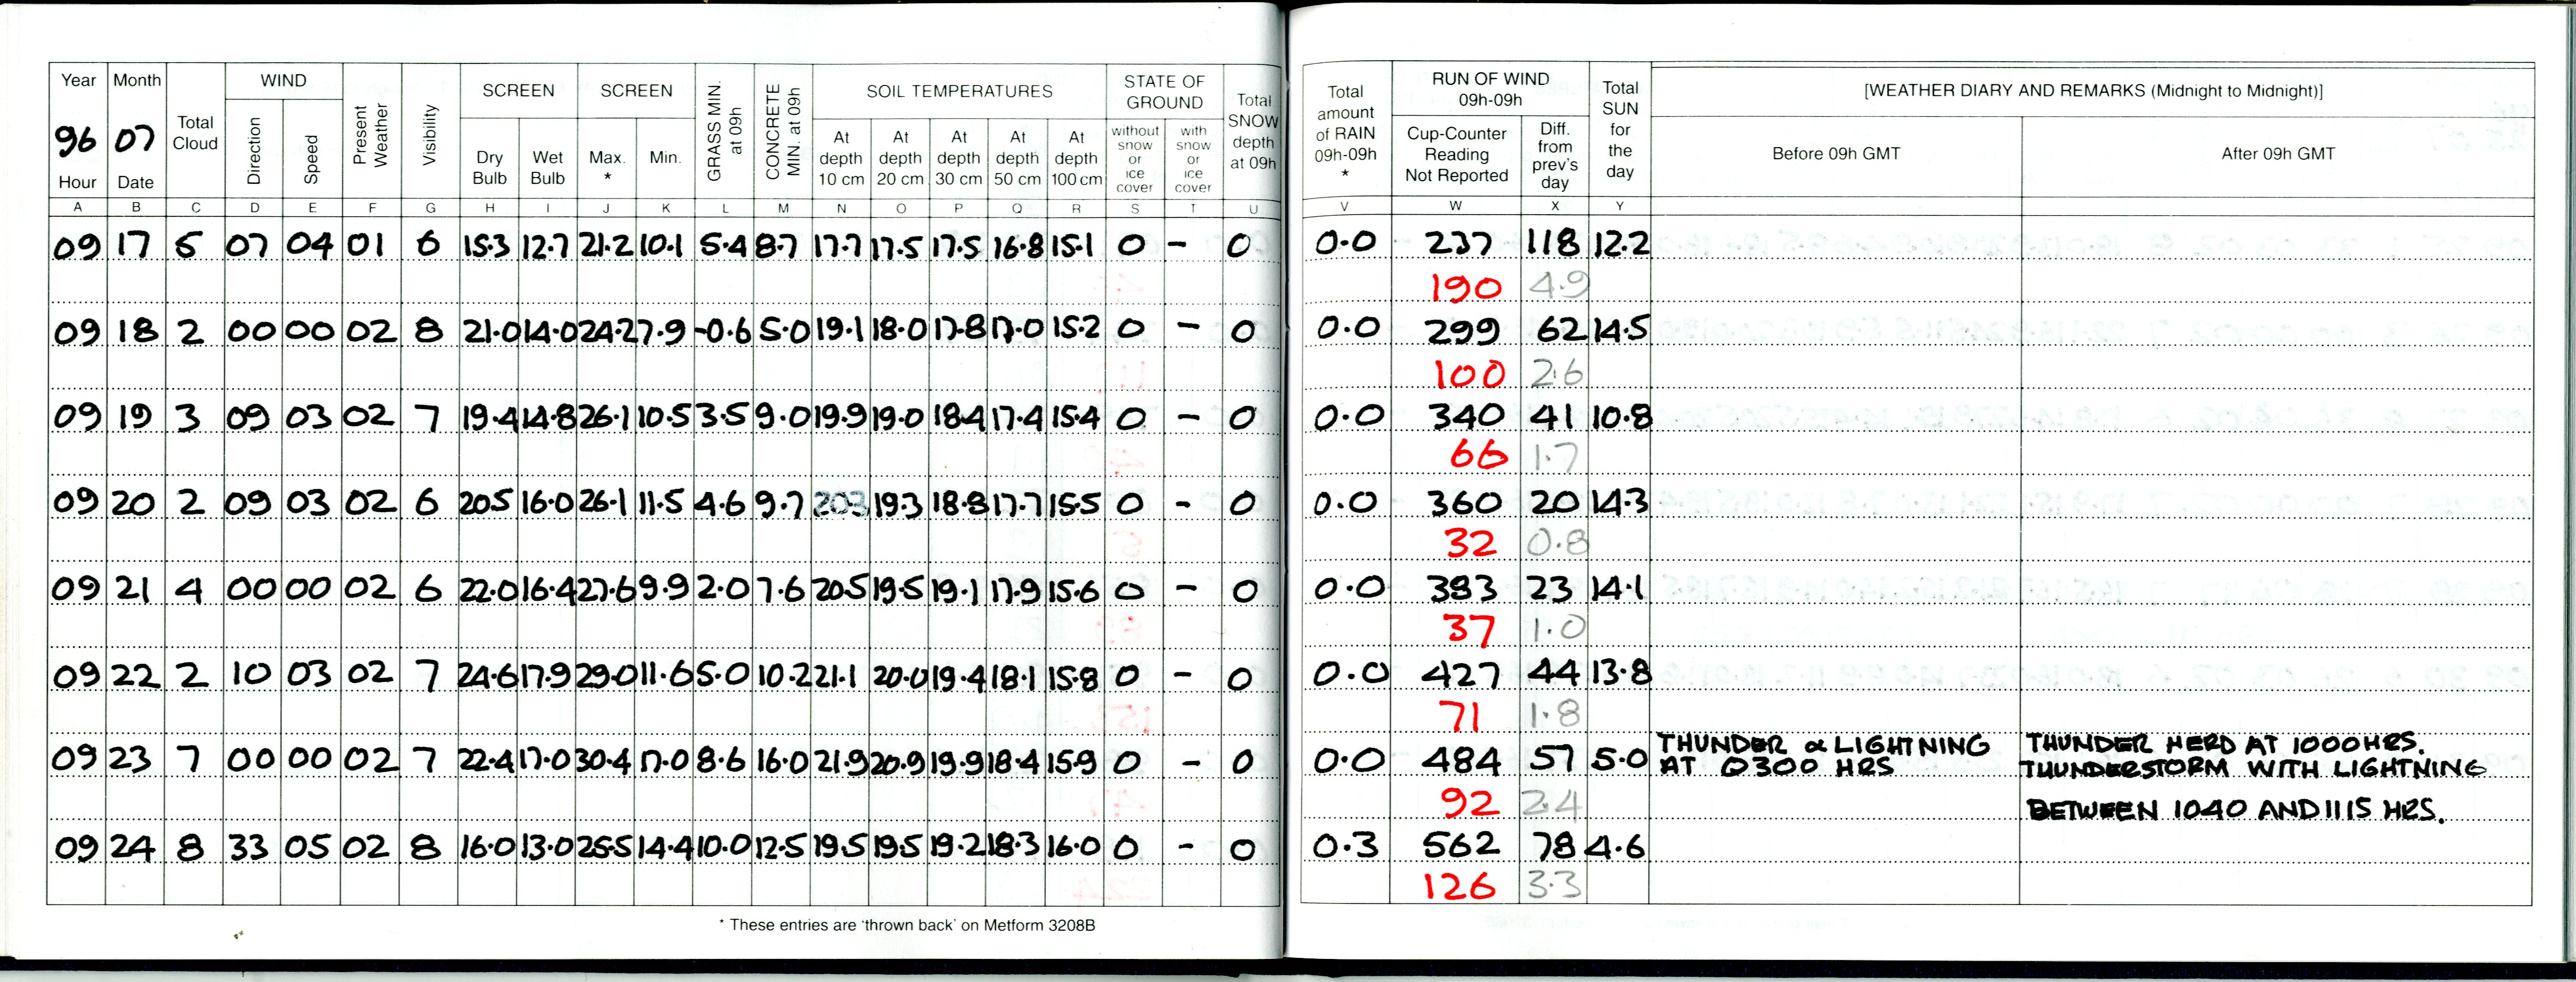 Year Month Total Cloud WIND Present Weather Visibility SCREEN SCREEN GRASS MIN. at 09h CONCRETE MIN. at 09h SOIL TEMPERATURES STATE OF GROUND Total SNOW depth at 09h Total amount of RAIN 09h-09h * RUN OF WIND 09h-09h Total SUN for the day [WEATHER DIARY AND REMARKS (Midnight to Midnight)]
96 07 Direction Speed Dry Bulb Wet Bulb Max. * Min. At depth 10 cm At depth 20 cm At depth 30 cm At depth 50 cm At depth 100 cm without snow or ice cover with snow or ice cover Cup-Counter Reading Not Reported Diff. from prev's day Before 09h GMT After 09h GMT
Hour Date
A B C D E F G H I J K L M N O P Q R S T U V W X Y
09 17 6 07 04 01 6 15.3 12.7 21.2 10.1 5.4 8.7 17.7 17.5 17.5 16.8 15.1 0 - 0 0.0 237 118 12.2
190 4.9
09 18 2 00 00 02 8 21.0 14.0 24.2 7.9 -0.6 5.0 19.1 18.0 17.8 17.0 15.2 0 - 0 0.0 299 62 14.5
100 2.6
09 19 3 09 03 02 7 19.4 14.8 26.1 10.5 3.5 9.0 19.9 19.0 18.4 17.4 15.4 0 - 0 0.0 340 41 10.8
66 1.7
09 20 2 09 03 02 6 20.5 16.0 26.1 11.5 4.6 9.7 203 19.3 18.8 17.7 15.5 0 - 0 0.0 360 20 14.3
32 0.8
09 21 4 00 00 02 6 22.0 16.4 27.6 9.9 2.0 7.6 20.5 19.5 19.1 17.9 15.6 0 - 0 0.0 383 23 14.1
37 1.0
09 22 2 10 03 02 7 24.6 17.9 29.0 11.6 5.0 10.2 21.1 20.0 19.4 18.1 15.8 0 - 0 0.0 427 44 13.8
71 1.8
09 23 7 00 00 02 7 22.4 17.0 30.4 17.0 8.6 16.0 21.9 20.9 19.9 18.4 15.9 0 - 0 0.0 484 57 5.0 THUNDER & LIGHTNING
AT 0300 HRS
THUNDER HERD AT 1000 HRS.
THUNDERSTORM WITH LIGHTNING
92 2.4 BETWEEN 1040 AND 1115 HRS.
09 24 8 33 05 02 8 16.0 13.0 25.5 14.4 10.0 12.5 19.5 19.5 19.2 18.3 16.0 0 - 0 0.3 562 78 4.6
126 3.3
* These entries are 'thrown back' on Metform 3208B